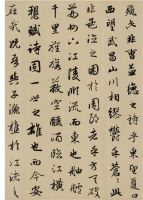 飛此非曹孟德之詩乎東望夏口
西望武昌山川相繆鬱乎蒼蒼此
非孟德之困於周郎者乎方其破
荊州下江陵順流而東也舳艫
千里旌旗蔽空釃酒臨江橫
槊賦詩固一世之雄也而今安
在哉況吾與子漁樵於江渚之